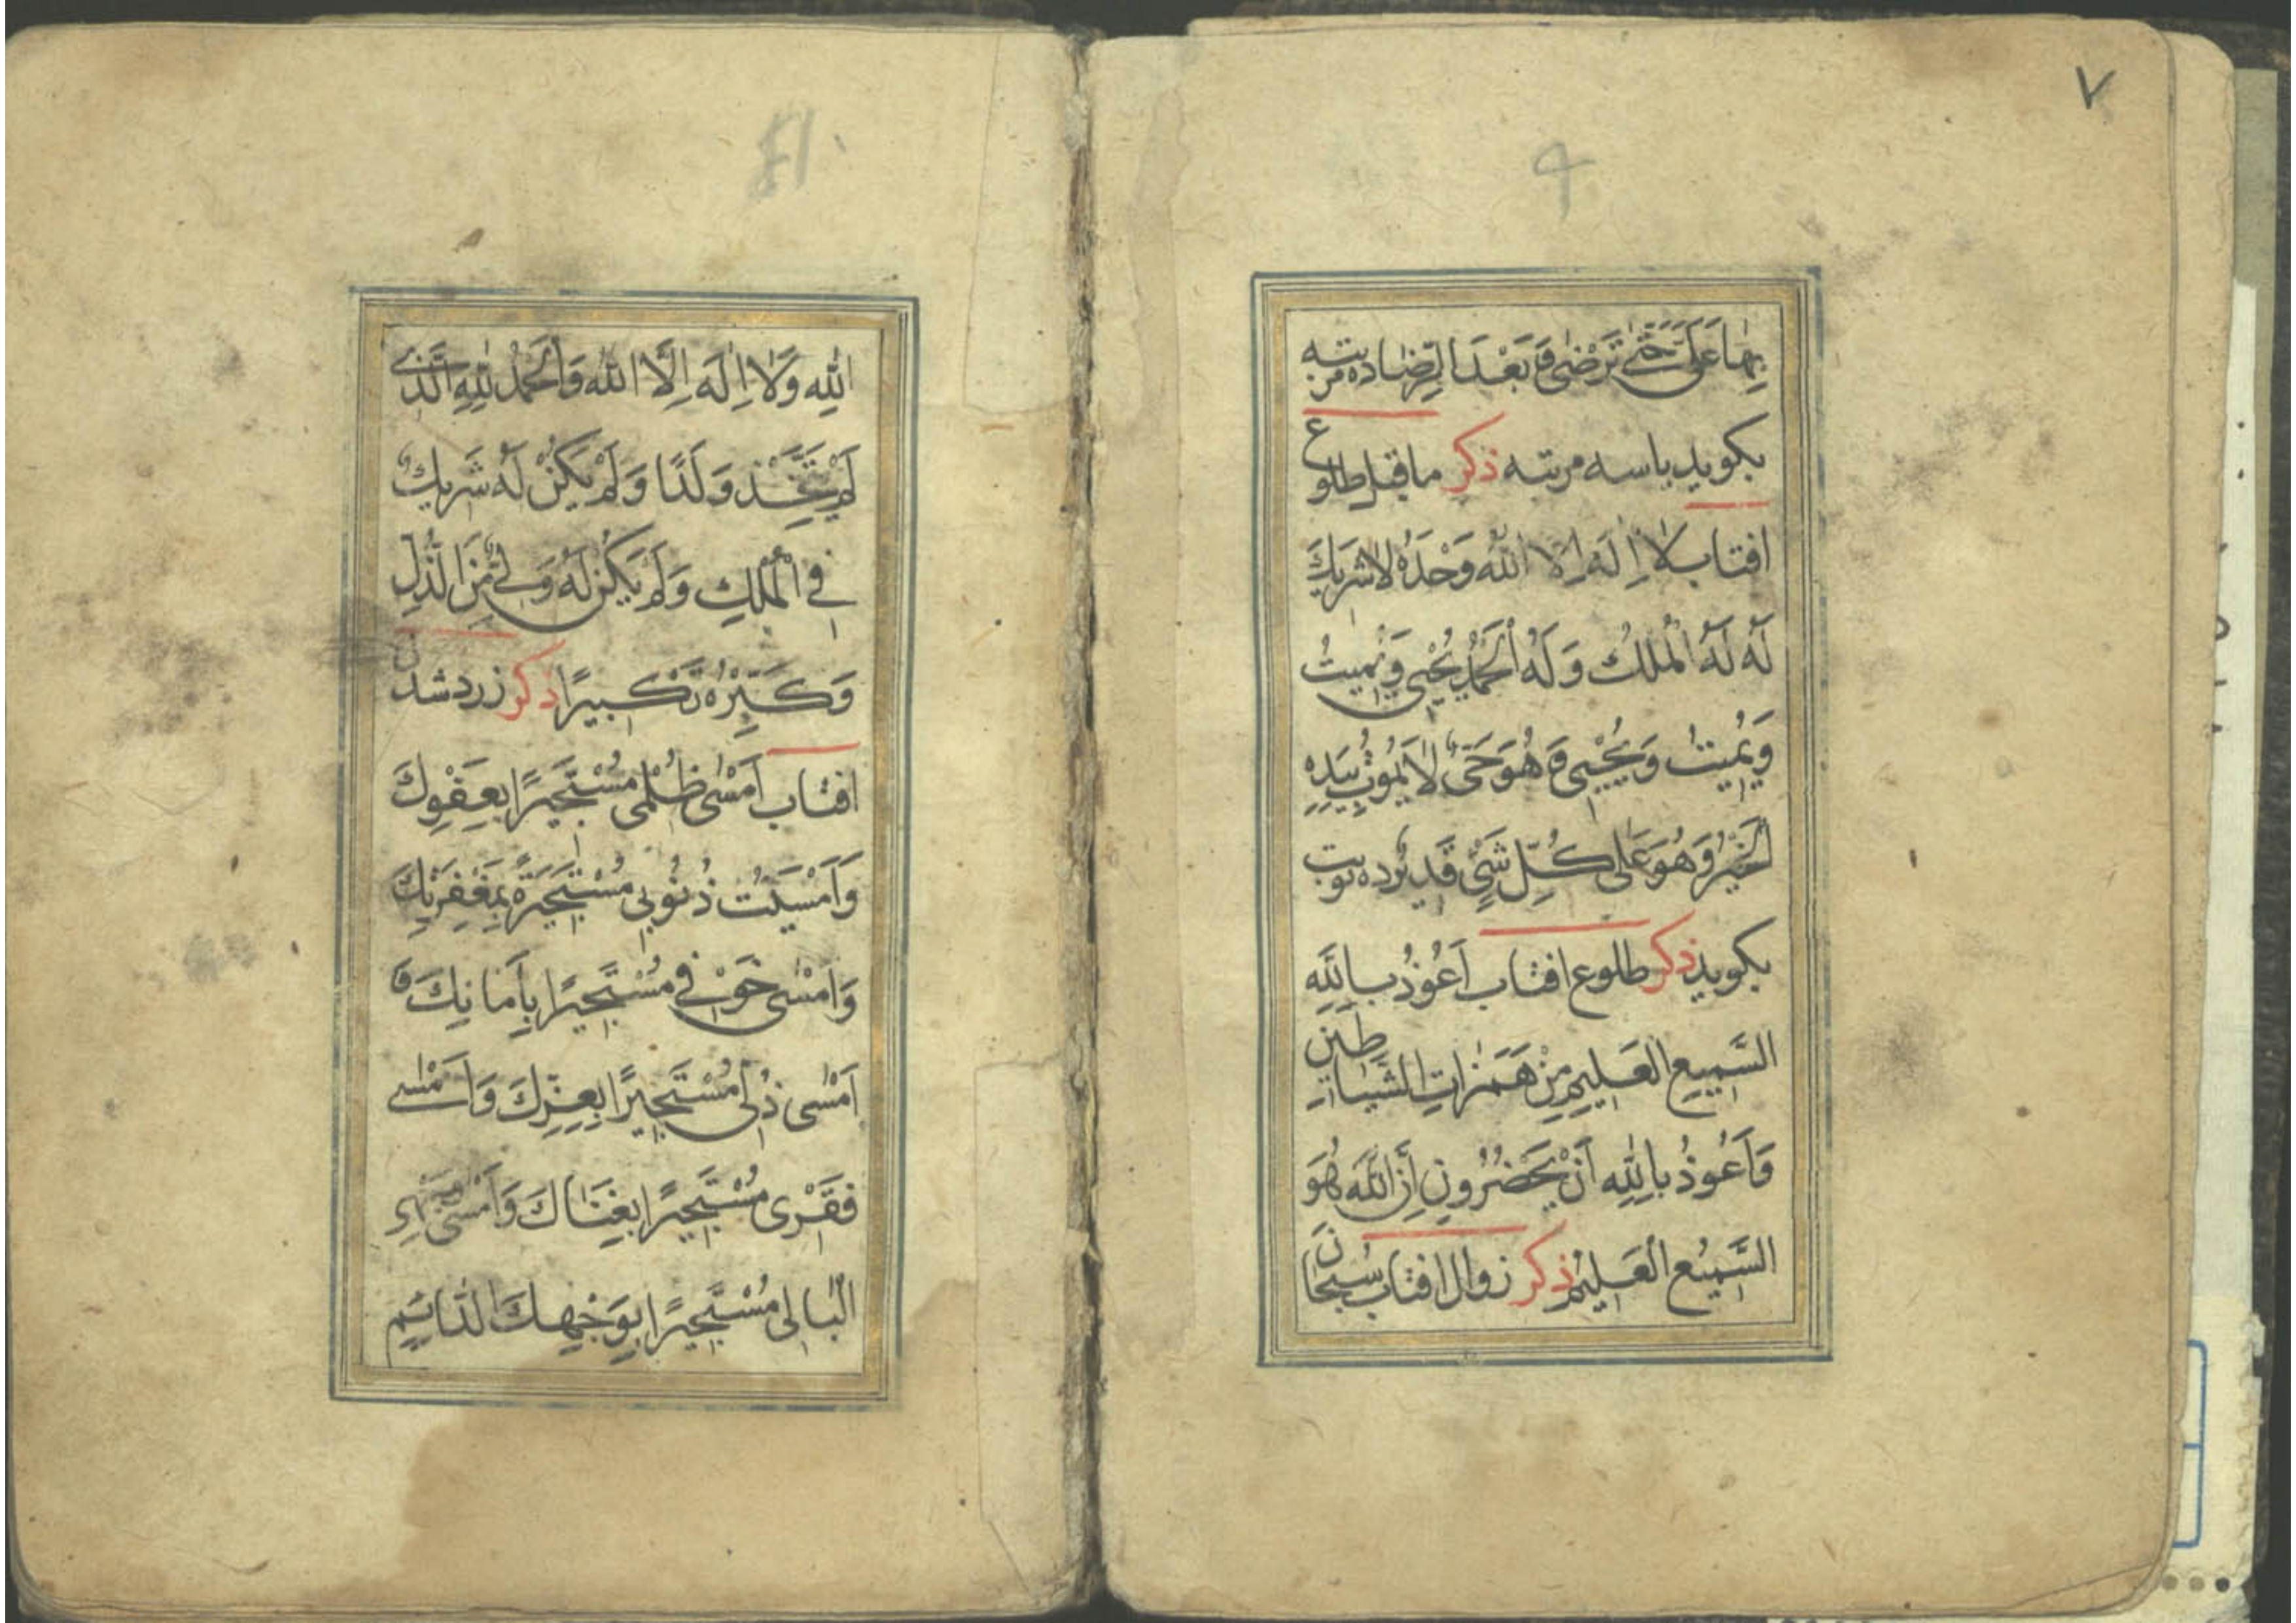 ٧
بِهَا عَنِّی حَتّٰی تَرْضٰی وَ بَعْدَ الرِّضَا ده مرتبه
بکوید یا سه مرتبه ذکر ما قبل طلوع
افتاب لَا اِلٰهَ اِلَّا اللّٰهُ وَحْدَهُ لَا شَرِيكَ
لَهُ لَهُ الْمُلْكُ وَ لَهُ الْحَمْدُ يُحْيِی وَ يُمِيتُ
وَ يُمِيتُ وَ يُحْيِی وَ هُوَ حَیٌّ لَا يَمُوتُ بِيَدِهِ
الْخَيْرُ وَ هُوَ عَلٰی كُلِّ شَیْءٍ قَدِيرٌ ده نوبت
بکوید ذکر طلوع افتاب اَعُوذُ بِاللّٰهِ
السَّمِيعِ الْعَلِيمِ مِنْ هَمَزَاتِ الشَّيَاطِينِ
وَ اَعُوذُ بِاللّٰهِ اَنْ يَحْضُرُونِ اِنَّ اللّٰهَ هُوَ
السَّمِيعُ الْعَلِيمُ ذکر زوال افتاب سُبْحَانَ
اللّٰهِ وَ لَا اِلٰهَ اِلَّا اللّٰهُ وَ الْحَمْدُ لِلّٰهِ الَّذِی
لَمْ يَتَّخِذْ وَلَدًا وَ لَمْ يَكُنْ لَهُ شَرِيكٌ
فِی الْمُلْكِ وَ لَمْ يَكُنْ لَهُ وَلِیٌّ مِنَ الذُّلِّ
وَ كَبِّرْهُ تَكْبِيرًا ذکر زرد شدن
افتاب اَمْسٰی ظُلْمِی مُسْتَجِيرًا بِعَفْوِكَ
وَ اَمْسَيَتْ ذُنُوبِی مُسْتَجِيرَةً بِمَغْفِرَتِكَ
وَ اَمْسٰی خَوْفِی مُسْتَجِيرًا بِاَمَانِكَ وَ
اَمْسٰی ذُلِّی مُسْتَجِيرًا بِعِزِّكَ وَ اَمْسٰی
فَقْرِی مُسْتَجِيرًا بِغِنَاكَ وَ اَمْسٰی
الْبَالِی مُسْتَجِيرًا بِوَجْهِكَ الدَّائِمِ